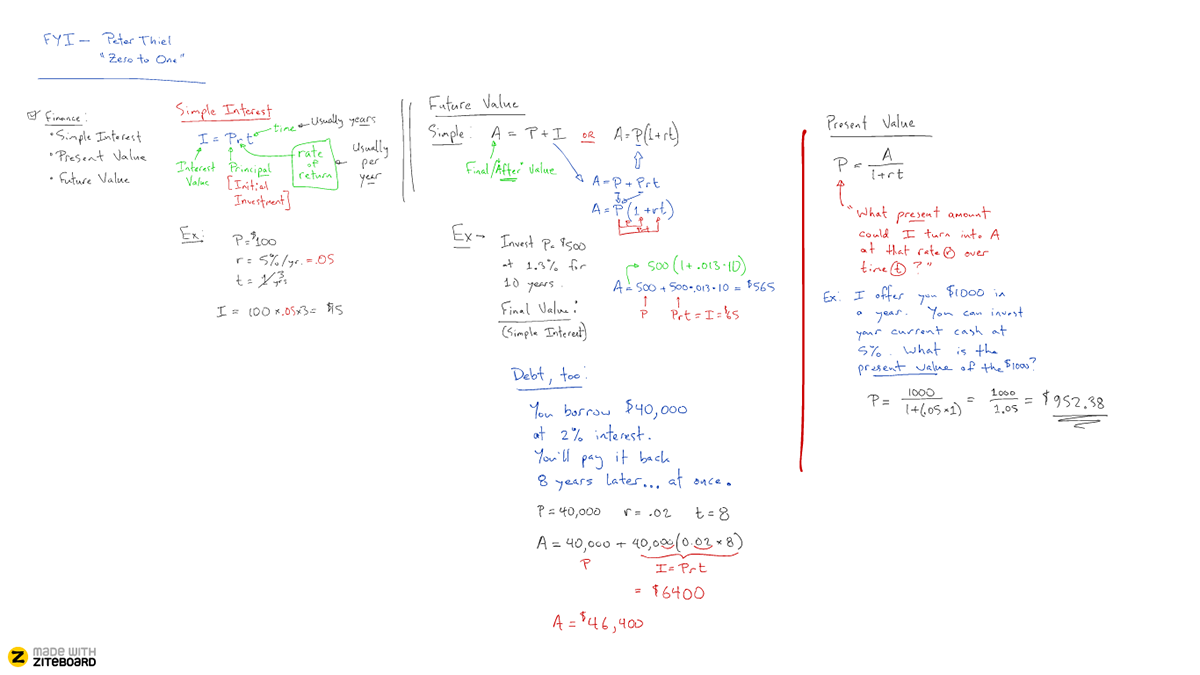 FYI — Peter Thiel
"Zero to One"
Finance:
• Simple Interest
• Present Value
• Future Value
Simple Interest
I = Prt
time
Usually years
Interest Value
Principal
[Initial Investment]
rate of return
Usually per year
Ex:
P=$100
r = 5%/yr. = .05
t = 3 yrs
I = 100 x .05x3= $15
Future Value
Simple: A = P+I OR A=P(1+rt)
Final/"After" Value
A=P+Prt
A=P(1+rt)
Prt
Ex→ Invest P=$500
at 1.3% for
10 years.
Final Value:
(Simple Interest)
500(1+.013·10)
A=500+500·.013·10 = $565
P Prt = I = $65
Debt, too:
You borrow $40,000
at 2% interest.
You'll pay it back
8 years later... at once.
P=40,000 r= .02 t=8
A=40,000 + 40,000(0.02×8)
P
I=Prt
= $6400
A=$46,400
Present Value
P = A / 1+rt
"What present amount
could I turn into A
at that rate (r) over
time (t)?"
Ex: I offer you $1000 in
a year. You can invest
your current cash at
5%. What is the
present value of the $1000?
P= 1000 / 1+(.05×1) = 1000 / 1.05 = $952.38
MADE WITH
ZITEBOARD